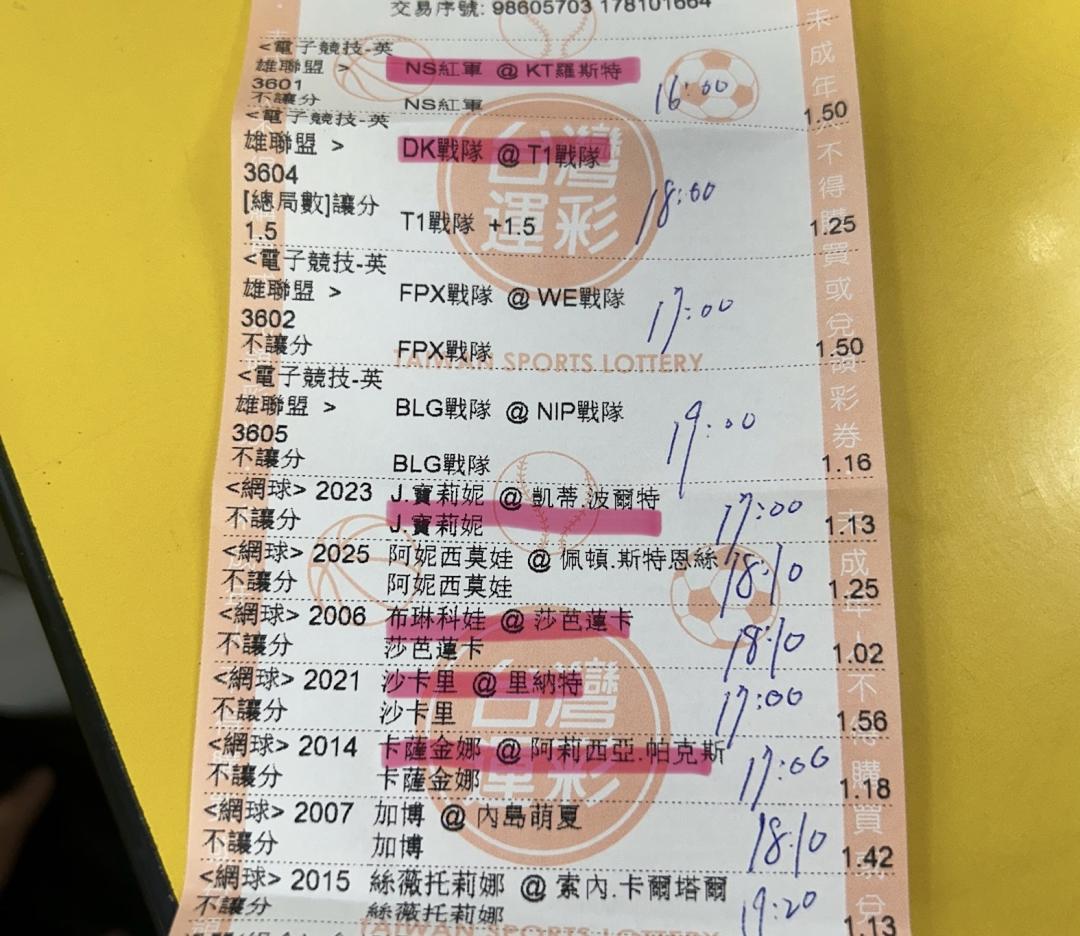 交易序號: 98605703 178101664
<電子競技-英
雄聯盟 > NS紅軍 @ KT羅斯特
3601
不讓分 NS紅軍 16:00 1.50
<電子競技-英
雄聯盟 > DK戰隊 @ T1戰隊
3604
[總局數]讓分
1.5 T1戰隊 +1.5 18:00 1.25
<電子競技-英
雄聯盟 > FPX戰隊 @ WE戰隊
3602 17:00
不讓分 FPX戰隊 1.50
<電子競技-英
雄聯盟 > BLG戰隊 @ NIP戰隊
3605 19:00
不讓分 BLG戰隊 1.16
<網球> 2023 J.寶莉妮 @ 凱蒂.波爾特
不讓分 J.寶莉妮 17:00 1.13
<網球> 2025 阿妮西莫娃 @ 佩頓.斯特恩絲
不讓分 阿妮西莫娃 18:10 1.25
<網球> 2006 布琳科娃 @ 莎芭蓮卡
不讓分 莎芭蓮卡 18:10 1.02
<網球> 2021 沙卡里 @ 里納特
不讓分 沙卡里 17:00 1.56
<網球> 2014 卡薩金娜 @ 阿莉西亞.帕克斯
不讓分 卡薩金娜 17:00 1.18
<網球> 2007 加博 @ 內島萌夏
不讓分 加博 18:10 1.42
<網球> 2015 絲薇托莉娜 @ 索內.卡爾塔爾
不讓分 絲薇托莉娜 19:20 1.13
台灣
運彩
TAIWAN SPORTS LOTTERY
台灣
運彩
TAIWAN SPORTS LOTTERY
未成年人不得購買或兌領彩券
未成年人不得購買或兌